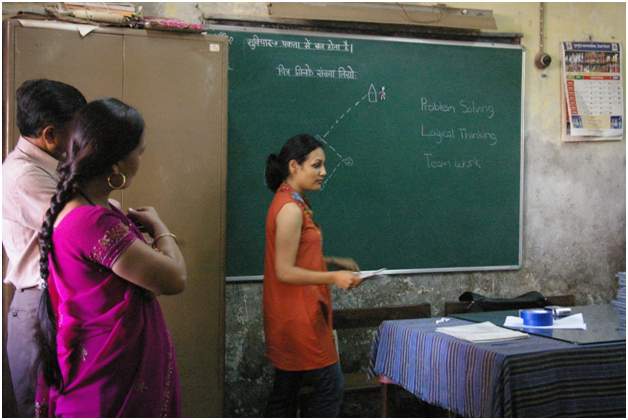 सुविचार→ एकता से बल होता है।
चित्र गिनके संख्या लिखो
Problem Solving
Logical Thinking
Team work